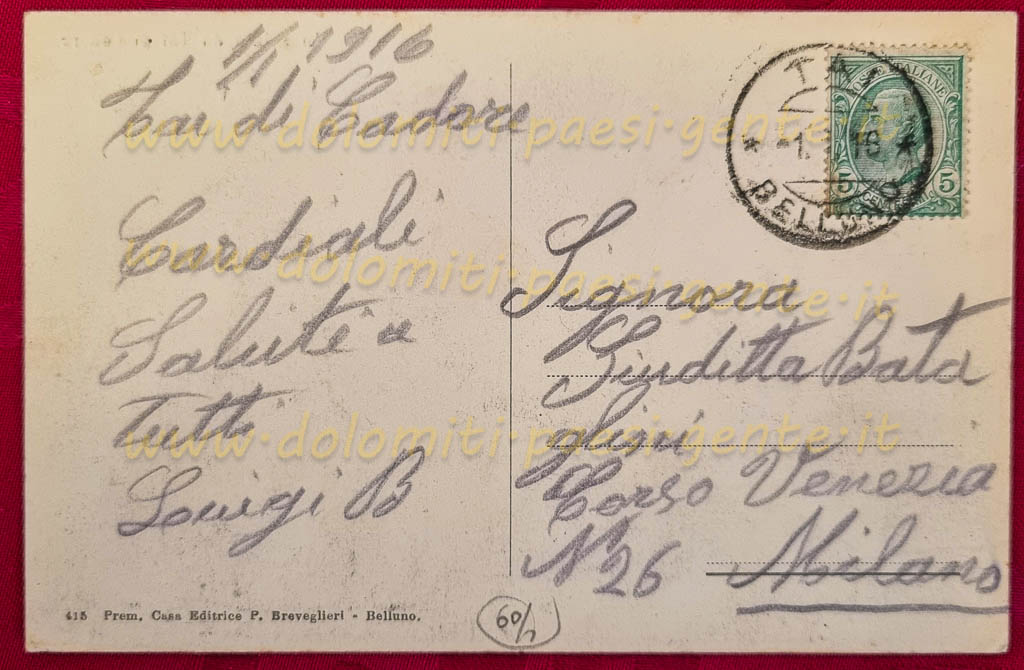 1/1 1916
Tai di Cadore
Cordiali
Saluti a
tutti
Luigi B
415 Prem. Casa Editrice P. Breveglieri - Belluno.
60/1
TAI
-1. 16
BELLUNO
POSTE ITALIANE
5 CENT 5
Signora
Giuditta Bata
glini
Corso Venezia
N 26 Milano
www.dolomiti-paesi-gente.it
www.dolomiti-paesi-gente.it
www.dolomiti-paesi-gente.it